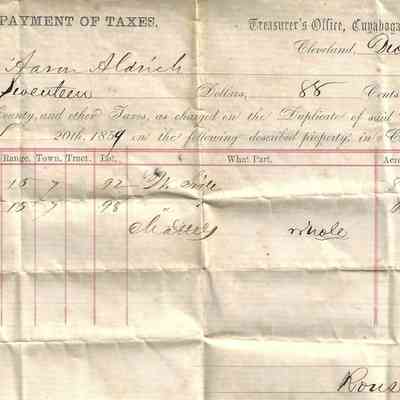 PAYMENT OF TAXES.
Treasurer's Office, Cuyahoga
Cleveland, Dec
Aaron Aldrich
Seventeen Dollars, 88 Cents
County, and other Taxes, as charged on the Duplicate of said
20th, 1859 on the following described property, in a C
Range. Town. Tract. Lot. What Part. Acr
15 7 92
15 7 98 " "
Chattels whole
Rouse